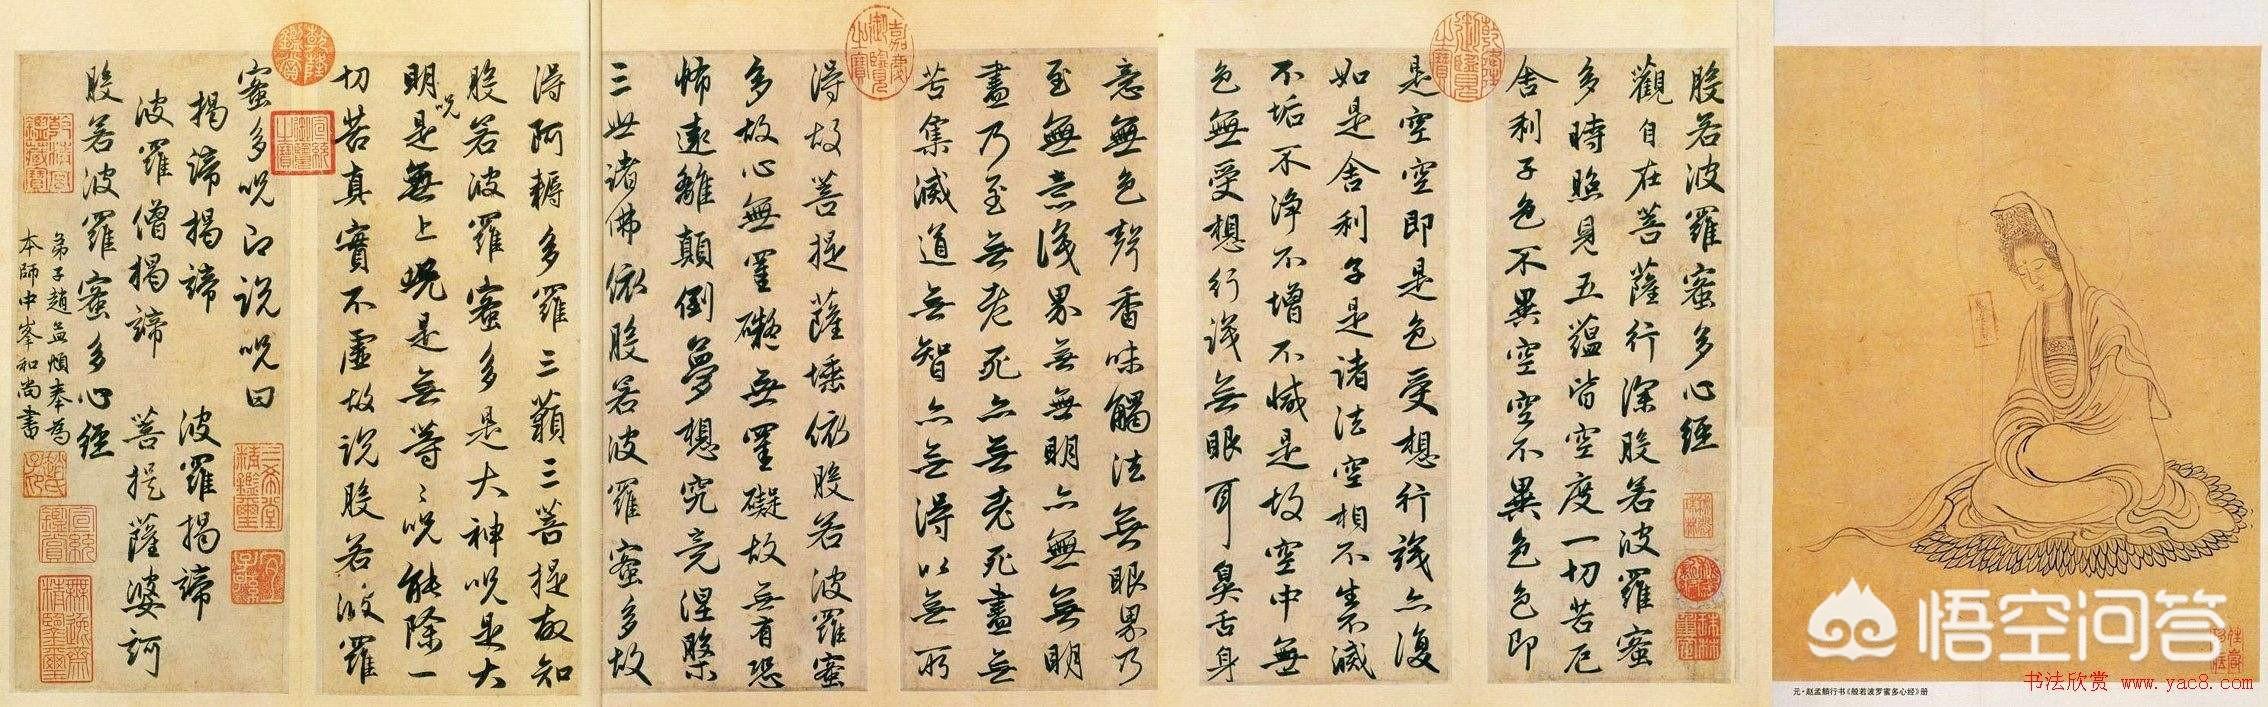 般若波羅蜜多心經
觀自在菩薩行深般若波羅蜜
多時照見五蘊皆空度一切苦厄
舍利子色不異空空不異色色即
是空空即是色受想行識亦復
如是舍利子是諸法空相不生不滅
不垢不淨不增不減是故空中無
色無受想行識無眼耳鼻舌身
意無色聲香味觸法無眼界乃
至無意識界無無明亦無無明
盡乃至無老死亦無老死盡無
苦集滅道無智亦無得以無所
得故菩提薩埵依般若波羅蜜
多故心無罣礙無罣礙故無有恐
怖遠離顛倒夢想究竟涅槃
三世諸佛依般若波羅蜜多故
得阿耨多羅三藐三菩提故知
般若波羅蜜多是大神呪是大
明呪是無上呪是無等〻呪能除一
切苦真實不虛故說般若波羅
蜜多呪即說呪曰
揭諦揭諦 波羅揭諦
波羅僧揭諦 菩提薩婆訶
般若波羅蜜多心經
弟子趙孟頫奉為
本師中峯和尚書
乾隆御覽之寶
嘉慶御覽之寶
乾隆鑑賞
宣統御覽之寶
三希堂精鑑璽
宜子孫
趙氏子昂
宣統鑑賞
無逸齋精鑑璽
元·赵孟頫行书《般若波罗蜜多心经》册
悟空问答
书法欣赏 www.yac8.com